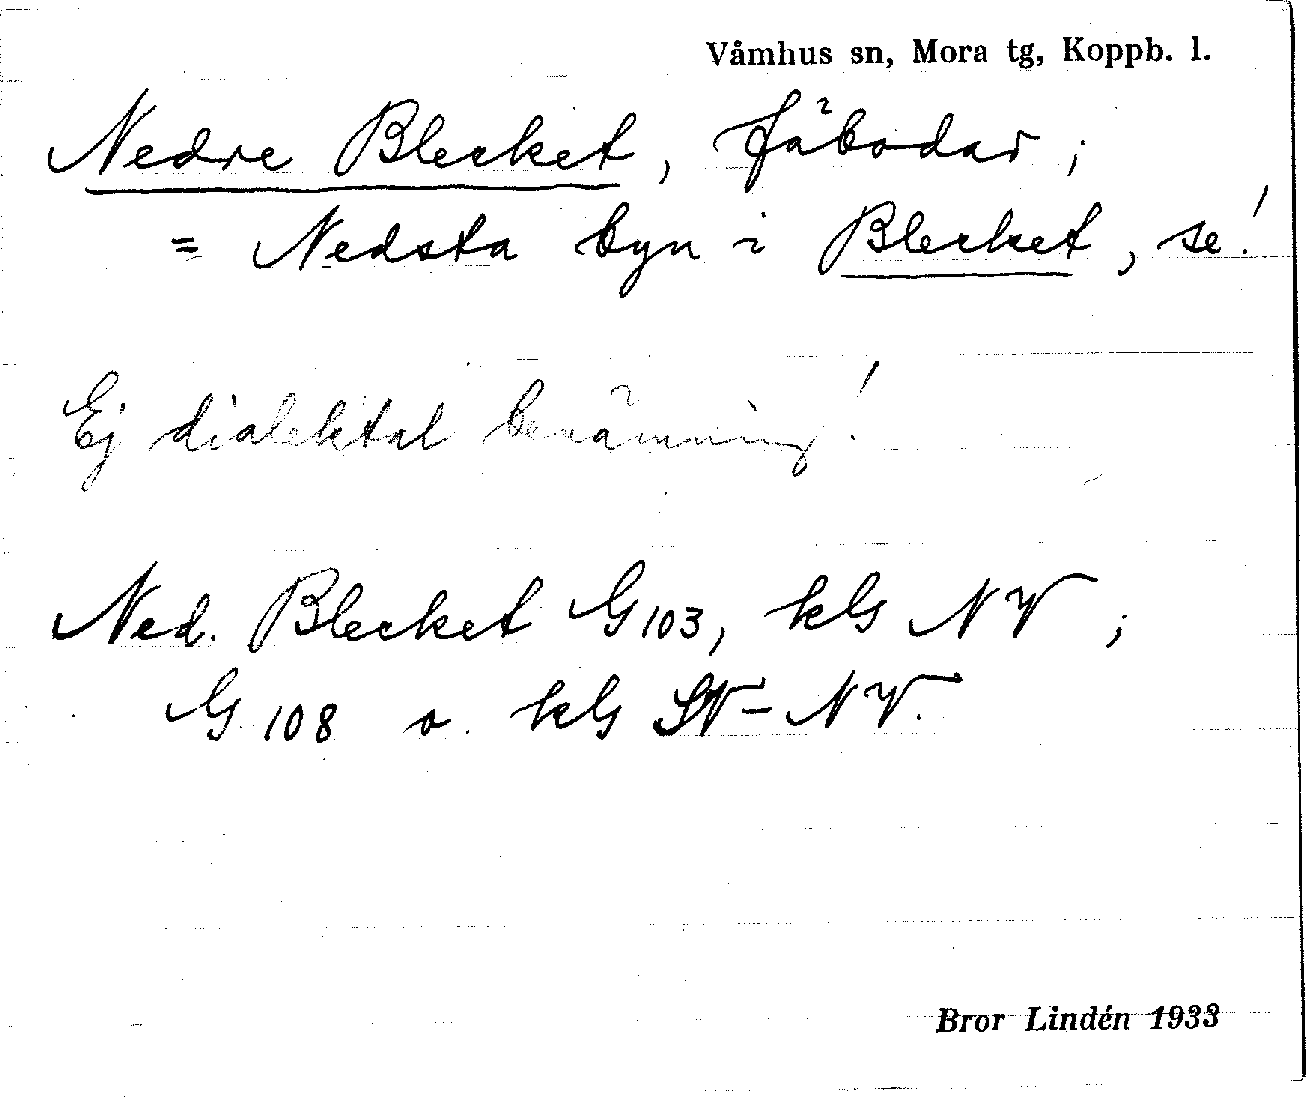 Våmhus sn, Mora tg, Koppb. l.
Nedre Blecket, fäbodar;
= Nedsta byn i Blecket, se!
Ej dialektal benämning!
Ned. Blecket G103, kls NV;
G 108 o. kls SV–NV.
Bror Lindén 1933